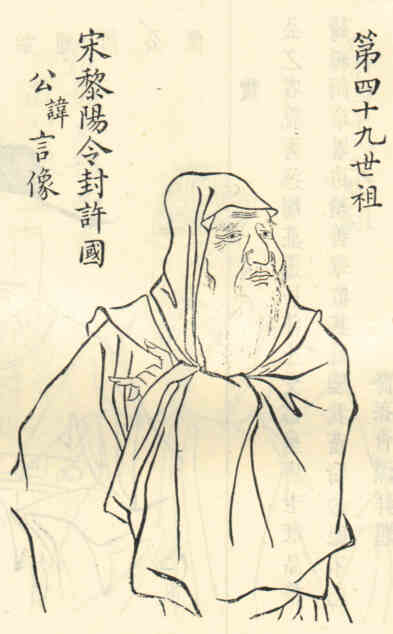 第四十九世祖
宋黎陽令封許國
公諱言像